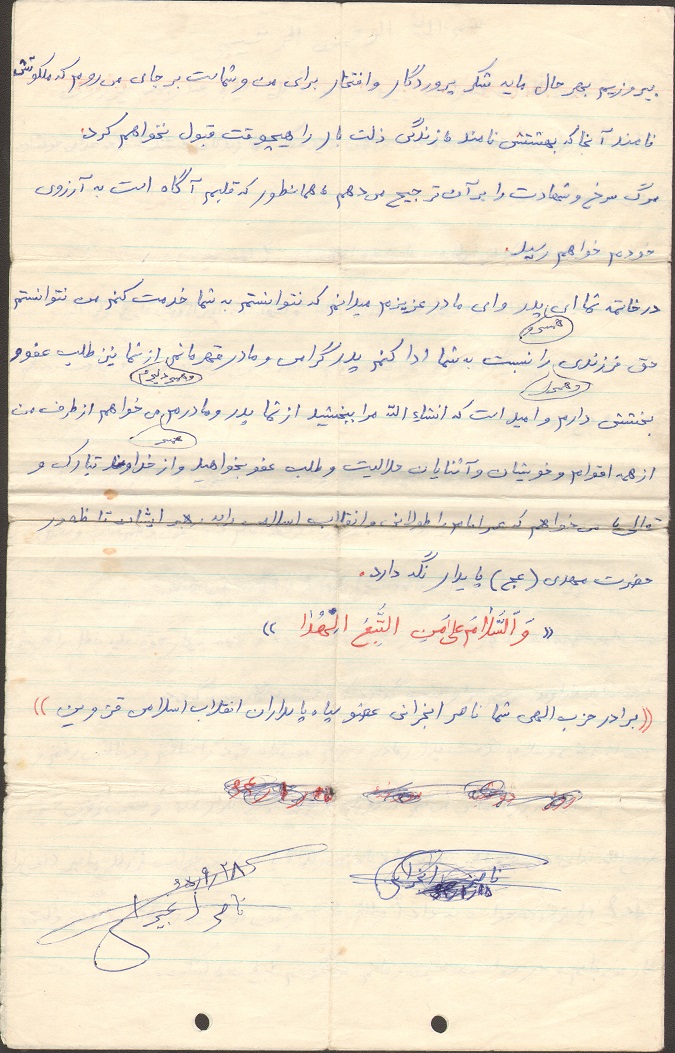 پیروزیم بهر حال مایه شکر پروردگار و افتخار برای من و شماست بر جای من روم که ملکوتش
نامند آنجا که بهشتش نامند ما زندگی ذلت بار را هیچوقت قبول نخواهم کرد.
مرگ سرخ و شهادت را بر آن ترجیح می دهم همانطور که قلبم آگاه است به آرزوی
خودم خواهم رسید.
در خاتمه شما ای پدر و ای مادر عزیزم میدانم که نتوانستم به شما خدمت کنم من نتوانستم
حق فرزندی را نسبت به شما ادا کنم پدر گرامی و مادر قهرمانم از شما نیز طلب عفو و
بخشش دارم و امید است که انشاء الله مرا ببخشید از شما پدر و مادرم می خواهم از طرف من
از همه اقوام و خویشان و آشنایان حلالیت و طلب عفو بخواهید و از خداوند تبارک و
تعالی می خواهم که عمر امام را طولانی و انقلاب اسلامی را به رهبر ایشان تا ظهور
حضرت مهدی (عج) پایدار نگه دارد.
« وَالسَّلامُ عَلی مَنِ التَّبَعَ الهُدا »
((برادر حزب الهی شما ناصر انجرانی عضو سپاه پاسداران انقلاب اسلامی قزوین))
ناصر
ناصر
۹/۲۸